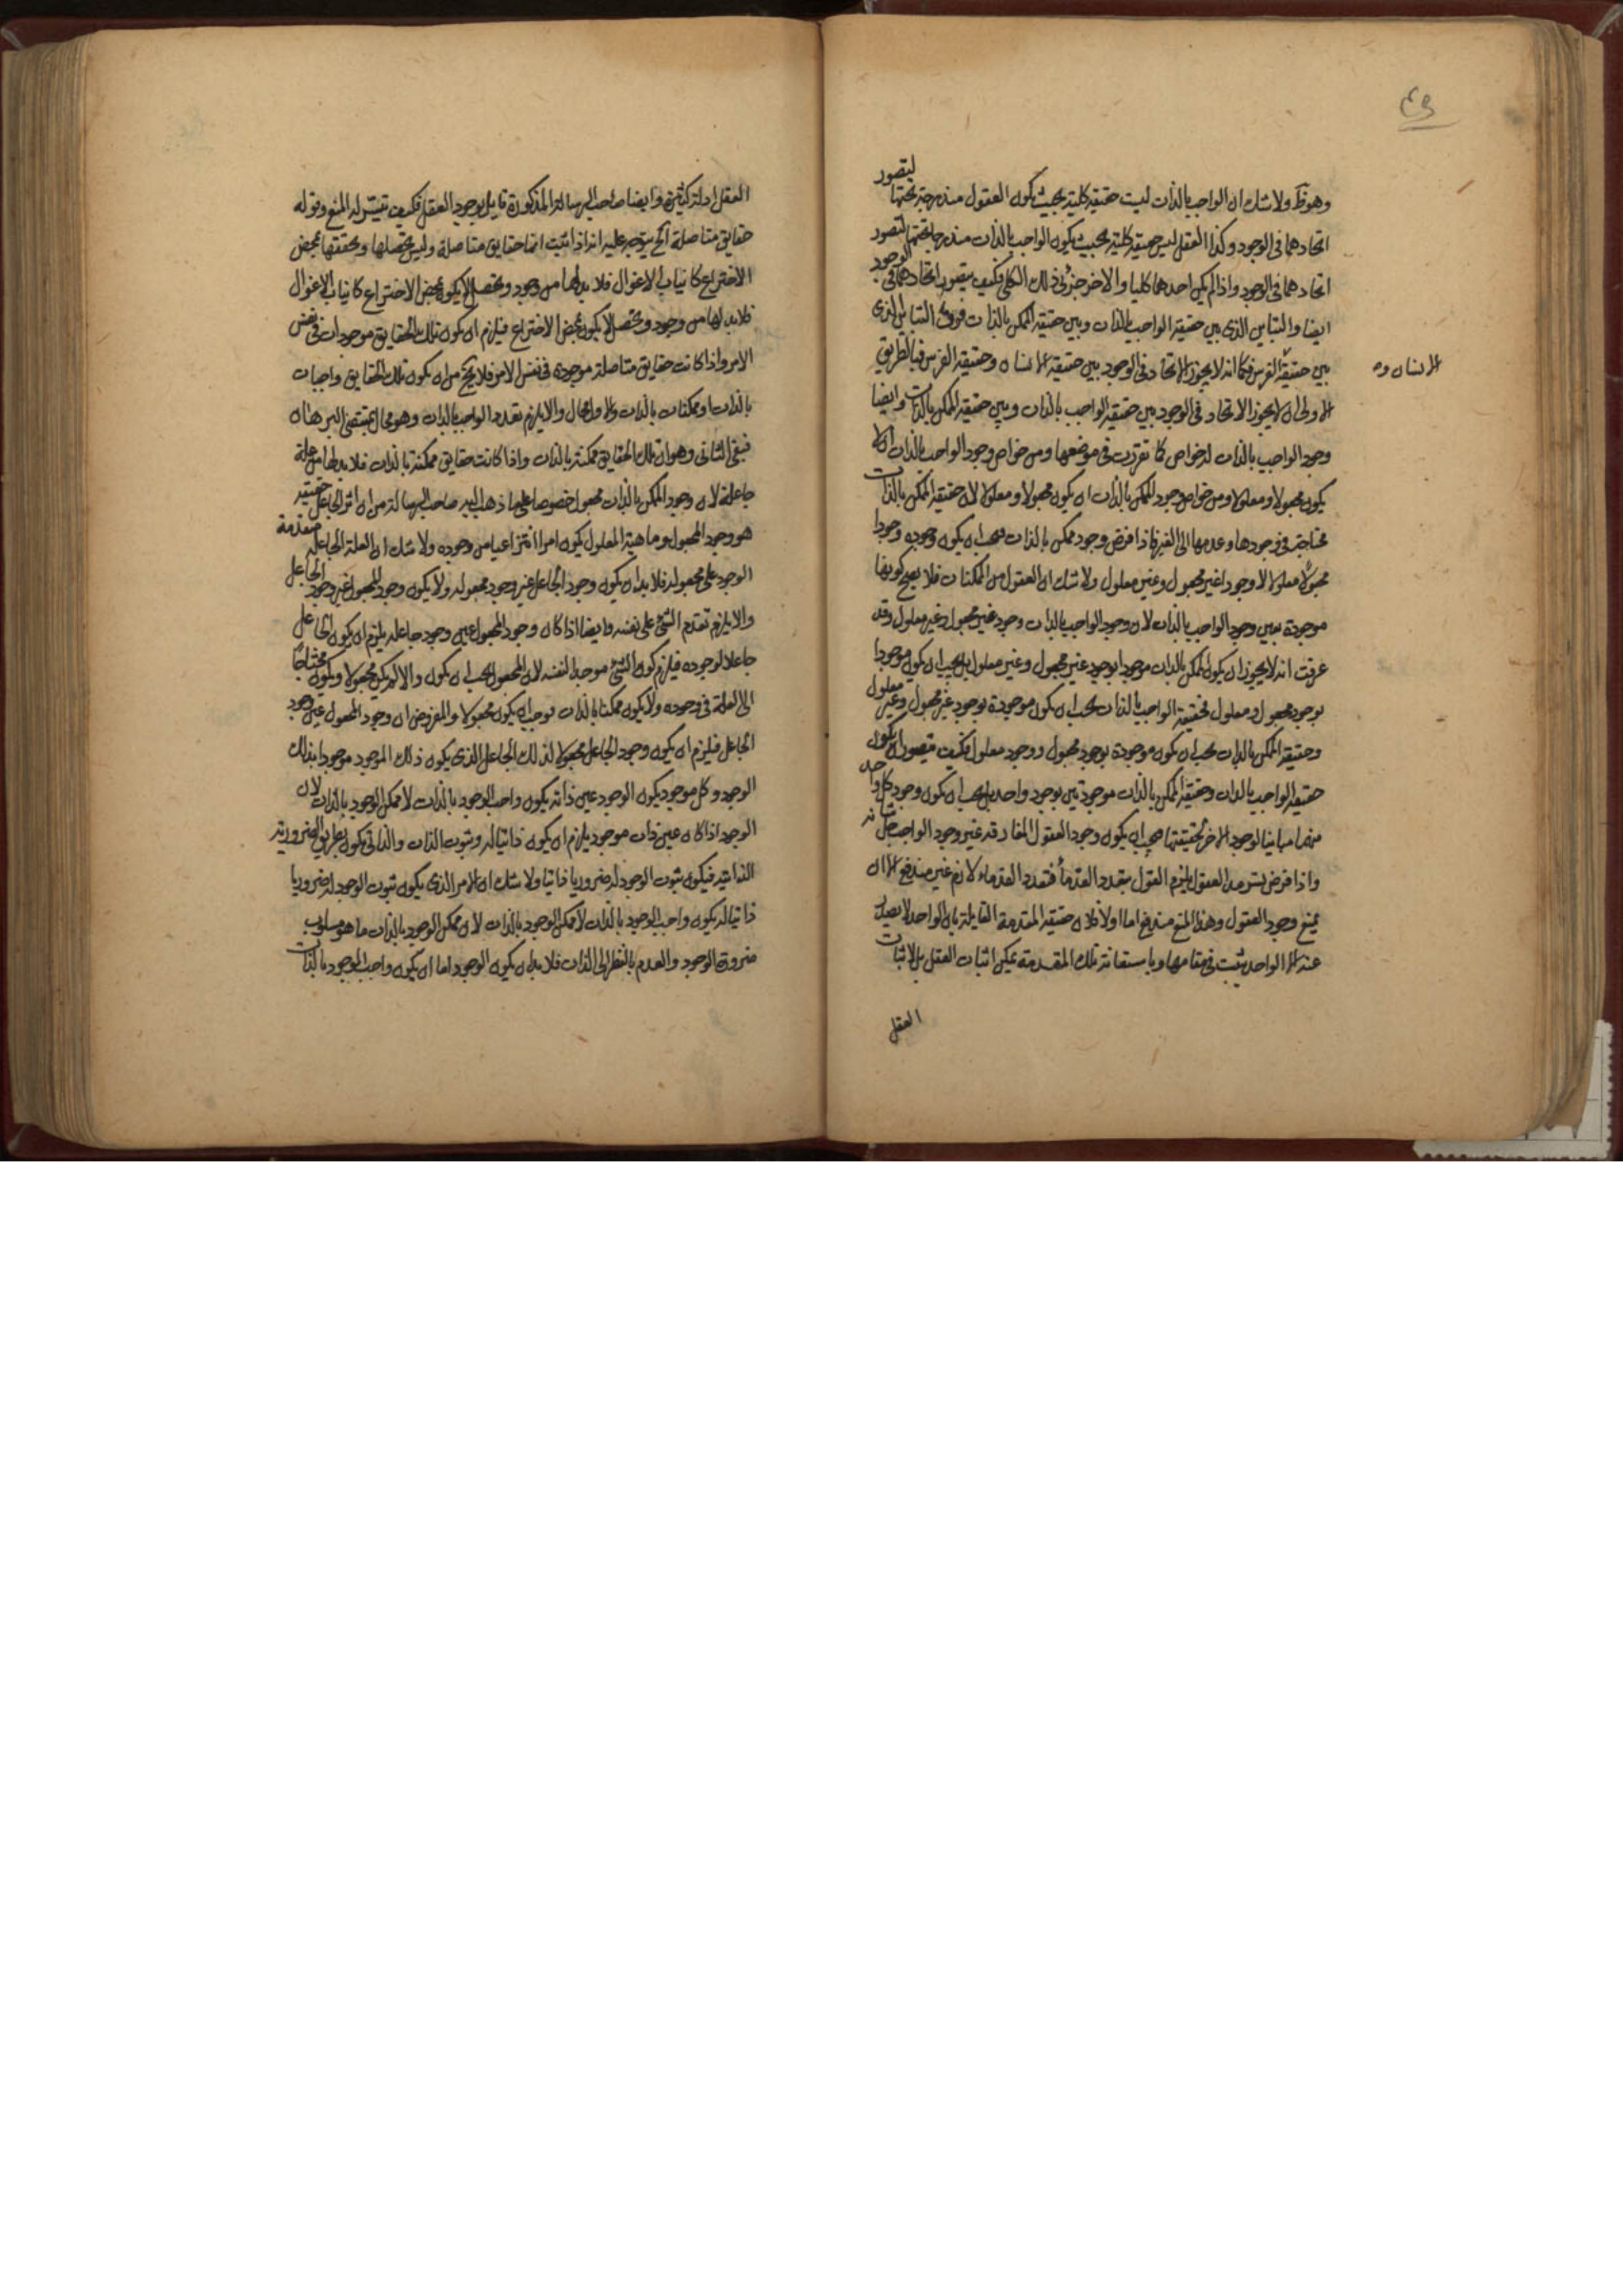 ٤٩
وهو ظ ولا شك ان الواجب بالذات ليست حقيقته كلية بحيث يكون العقول مندرجة تحتها ليتصور
اتحادهما فى الوجود وكذا العقل ليس حقيقته كلية بحيث يكون الواجب بالذات مندرجا تحتها ليتصور
اتحادهما فى الوجود واذا لم يكن احدهما كليا والاخر جزئى ذلك الكلى فكيف يتصور اتحادهما فى الوجود
ايضا والتباين الذى بين حقيقة الواجب بالذات وبين حقيقة الممكن بالذات فوق التباين الذى
بين حقيقة الفرس فكما انه لا يجوز الاتحاد فى الوجود بين حقيقة الانسان وحقيقة الفرس فبالطريق
الانسان و
الاولى ان لا يجوز الاتحاد فى الوجود بين حقيقة الواجب بالذات وبين حقيقة الممكن بالذات وايضا
وجود الواجب بالذات له خواص كما تقررت فى موضعها ومن خواص وجود الواجب بالذات ان لا
يكون مجعولا ومعلولا ومن خواص وجود الممكن بالذات ان يكون مجعولا ومعلولا لان حقيقة الممكن بالذات
محتاجة فى وجودها وعدمها الى الغير فاذا فرض وجود ممكن بالذات يجب ان يكون وجوده وجودا
مجعولا معلولا لا وجودا غير مجعول وغير معلول ولا شك ان العقول من الممكنات فلا يصح كونها
موجودة بعين وجود الواجب بالذات لان وجود الواجب بالذات وجود غير مجعول وغير معلول وقد
عرفت انه لا يجوز ان يكون الممكن بالذات موجودا بوجود غير مجعول وغير معلول بل يجب ان يكون موجودا
بوجود مجعول ومعلول فحقيقة الواجب بالذات يجب ان يكون موجودة بوجود غير مجعول وغير معلول
وحقيقة الممكن بالذات يجب ان يكون موجودة بوجود مجعول ووجود معلول فكيف يتصور ان يكون
حقيقة الواجب بالذات وحقيقة الممكن بالذات موجودتين بوجود واحد بل يجب ان يكون وجود كل واحد
منهما مباينا لوجود الاخر لحقيقتها فيجب ان يكون وجود العقول المفارقة غير وجود الواجب جل شانه
واذا فرض تسرمد العقول يلزم القول بتعدد القدماء فتعدد القدماء لازم غير مندفع الا ان
يمنع وجود العقول وهذا المنع مندفع اما اولا فلان حقيقة المقدمة القايلة بان الواحد لا يصدر
عنه الا الواحد يثبت فى مقامها وباستعانة تلك المقدمة يمكن اثبات العقل بل لاثبات
العقل
العقل ادلة كثيرة وايضا صاحب الرسالة المذكورة قايل بوجود العقل فكيف تيسر له المنع وقوله
حقايق متاصلة الخ يتوجه عليه انه اذا ثبت انها حقايق متاصلة وليس تحصلها وتحققها بمحض
الاختراع كانياب الاغوال فلا بد لها من وجود وتحصل لا يكون بمحض الاختراع كانياب الاغوال
فلا بد لها من وجود وتحصل لا يكون بمحض الاختراع فيلزم ان يكون تلك الحقايق موجودات فى نفس
الامر واذا كانت حقايق متاصلة موجودة فى نفس الامر فلا يخ من ان يكون تلك الحقايق واجبات
بالذات او ممكنات بالذات والاول محال والا يلزم تعدد الواجب بالذات وهو محال بمقتضى البرهان
فبقى الثانى وهو ان تلك الحقايق ممكنة بالذات واذا كانت حقايق ممكنة بالذات فلا بد لها من علة
جاعلة لان وجود الممكن بالذات مجعول خصوصا على ما ذهب اليه صاحب الرسالة من ان اثر الجاعل حقيقة
هو وجود المجعول وماهية المعلول يكون امرا انتزاعيا من وجوده ولا شك ان العلة الجاعلة متقدمة
الوجود على مجعوله فلا بد ان يكون وجود الجاعل غير وجود مجعوله ولا يكون وجود المجعول عين وجود الجاعل
والا يلزم تقدم الشئ على نفسه وايضا اذا كان وجود المجعول عين وجود جاعله يلزم ان يكون الجاعل
جاعلا لوجوده فيلزم كون الشئ موجدا لنفسه لان المجعول يجب ان يكون والا لم يكن مجعولا ويكون محتاجا
الى العلة فى وجوده ولا يكون ممكنا بالذات فوجب ان يكون مجعولا والمفروض ان وجود المجعول عين وجود
الجاعل فيلزم ان يكون وجود الجاعل مجعولا لذلك الجاعل الذى يكون ذلك الموجود موجودا بذلك
الوجود وكل موجود يكون الوجود عين ذاته يكون واجب الوجود بالذات لا ممكن الوجود بالذات لان
الوجود اذا كان عين ذات موجود يلزم ان يكون ذاتيا له وثبوت الذات والذاتى يكون بطريق الضرورية
الذاتية فيكون ثبوت الوجود له ضروريا ذاتيا ولا شك ان الامر الذى يكون ثبوت الوجود له ضروريا
ذاتيا له يكون واجب الوجود بالذات لا ممكن الوجود بالذات لان ممكن الوجود بالذات ما هو مسلوب
ضرورة الوجود والعدم بالنظر الى الذات فلا بد ان يكون الوجود اما ان يكون واجب الوجود بالذات